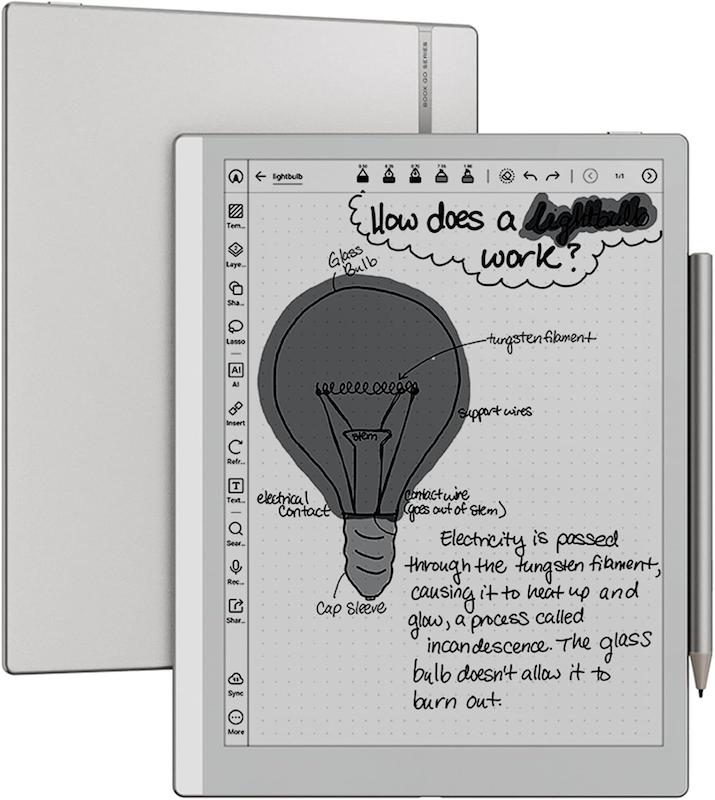 BOOX GO SERIES
lightbulb
1/1
Tem...
Laye...
Sha...
Lasso
AI
AI
Insert
Refr...
T
Text...
Sear...
Rec...
Shar...
Sync
More
How does a lightbulb
work?
Glass
Bulb
tungsten filament
support wires
stem
electrical
contact
contact wire
(goes out of stem)
Cap sleeve
Electricity is passed
through the tungsten filament,
causing it to heat up and
glow, a process called
incandescence. The glass
bulb doesn't allow it to
burn out.